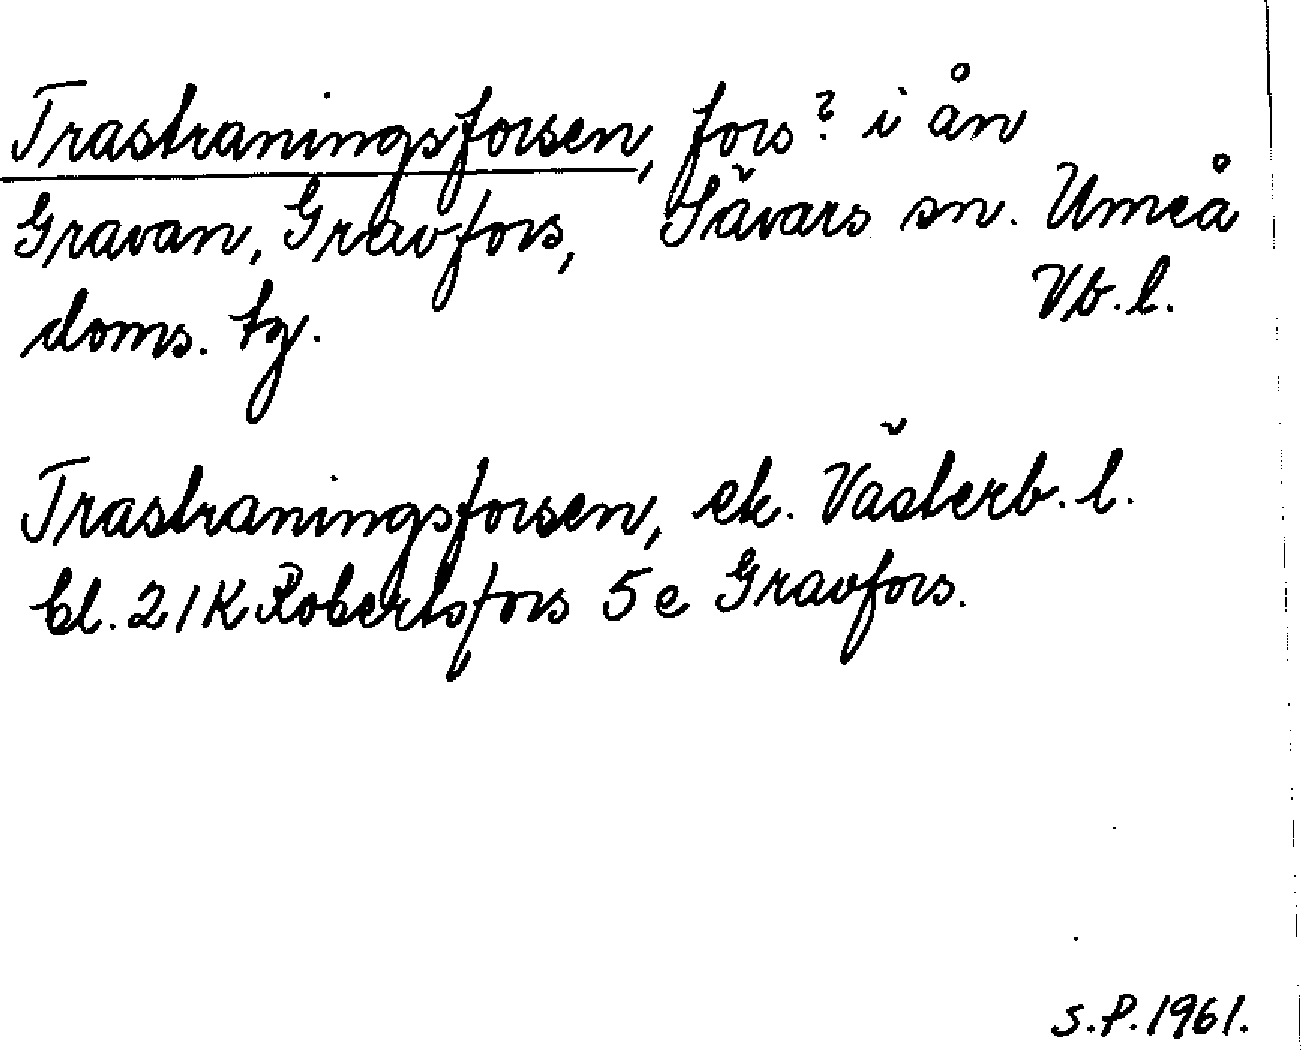 Trastraningsforsen, fors? i ån
Gravan, Gravfors, Sävars sn. Umeå
doms. tg. Vb. l.
Trastraningsforsen, ek. Västerb. l.
bl. 21K Robertsfors 5e Gravfors.
S.P. 1961.